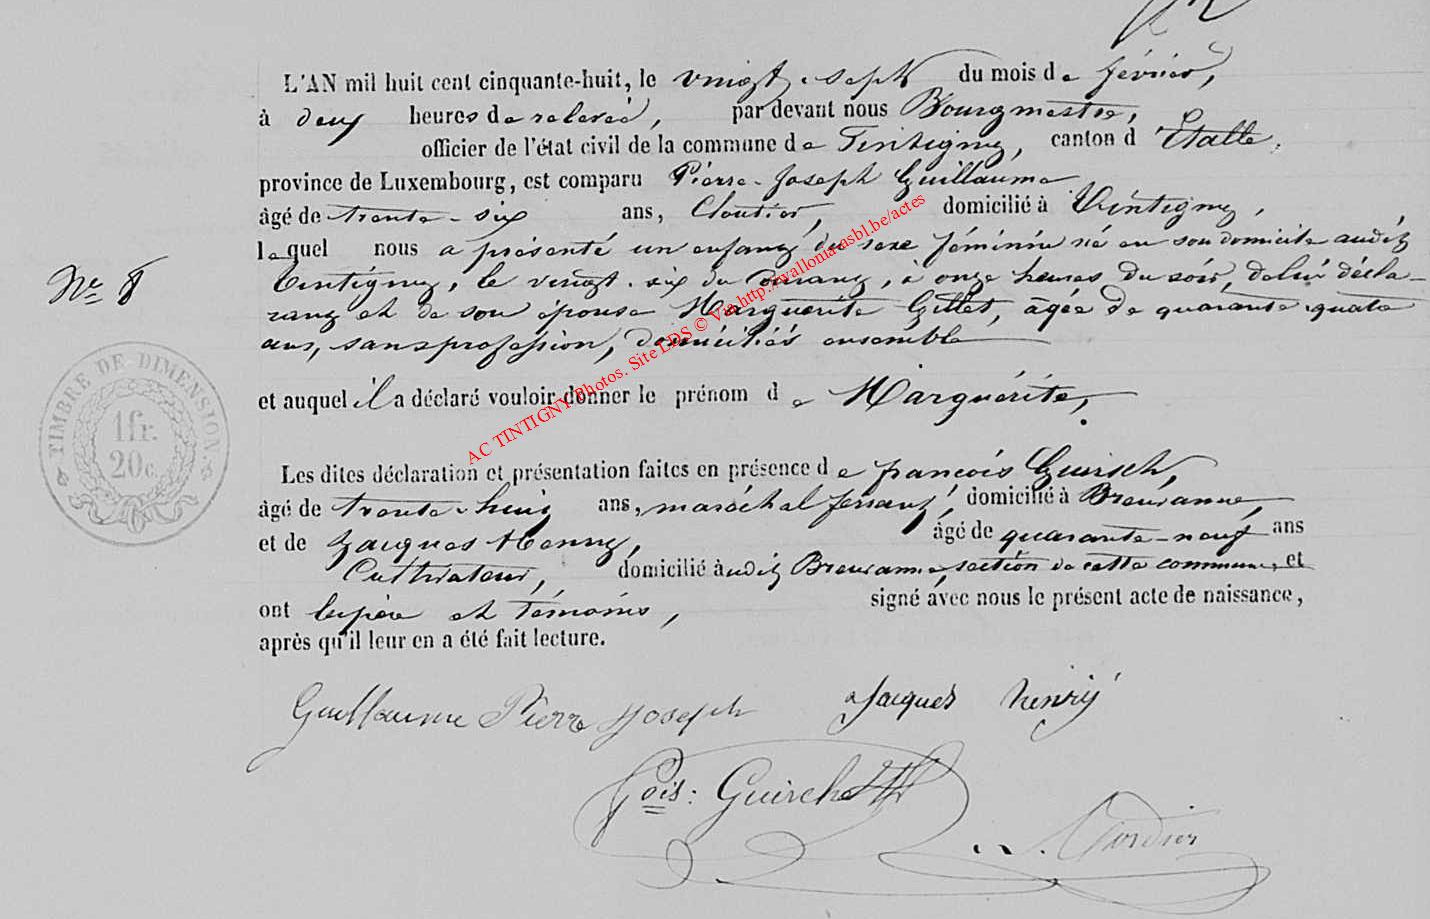 L'AN mil huit cent cinquante-huit, le vingt-sept du mois de février,
à deux heures de relevée, par devant nous Bourgmestre,
officier de l'état civil de la commune de Tintigny, canton d'Etalle,
province de Luxembourg, est comparu Pierre-Joseph Guillaume
âgé de trente-six ans, Cloutier, domicilié à Tintigny,
lequel nous a présenté un enfant du sexe féminin né en son domicile audit
Tintigny, le vingt-six du courant, à onze heures du soir, de lui décla-
rant et de son épouse Marguérite Gillet, âgée de quarante quatre
ans, sans profession, domiciliés ensemble
Nº 8
et auquel il a déclaré vouloir donner le prénom de Marguérite,
TIMBRE DE DIMENSION.
1 fr.
20 c.
Les dites déclaration et présentation faites en présence de françois Guirsch,
âgé de trente-huit ans, maréchal ferrant, domicilié à Breuvanne,
et de Jacques Henry, âgé de quarante-neuf ans
Cultivateur, domicilié audit Breuvanne, section de cette commune, et
ont le père et témoins, signé avec nous le présent acte de naissance,
après qu'il leur en a été fait lecture.
Guillaume Pierre Joseph Jacques henry
fçois: Guirsch
AC TINTIGNY Photos. Site LDS © Via http://wallonia-asbl.be/actes